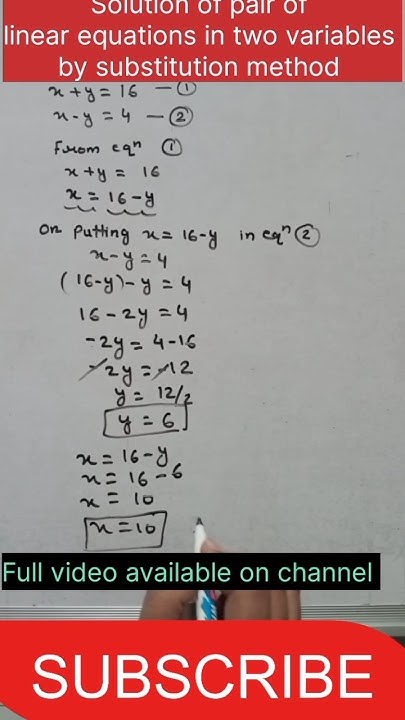 Solution of pair of
linear equations in two variables
by substitution method
x+y = 16 — ①
x-y = 4 — ②
From eqⁿ ①
x+y = 16
x = 16-y
On putting x = 16-y in eqⁿ ②
x-y = 4
(16-y)-y = 4
16-2y = 4
-2y = 4-16
-2y = -12
y = 12/2
y = 6
x = 16-y
x = 16-6
x = 10
x = 10
Full video available on channel
SUBSCRIBE